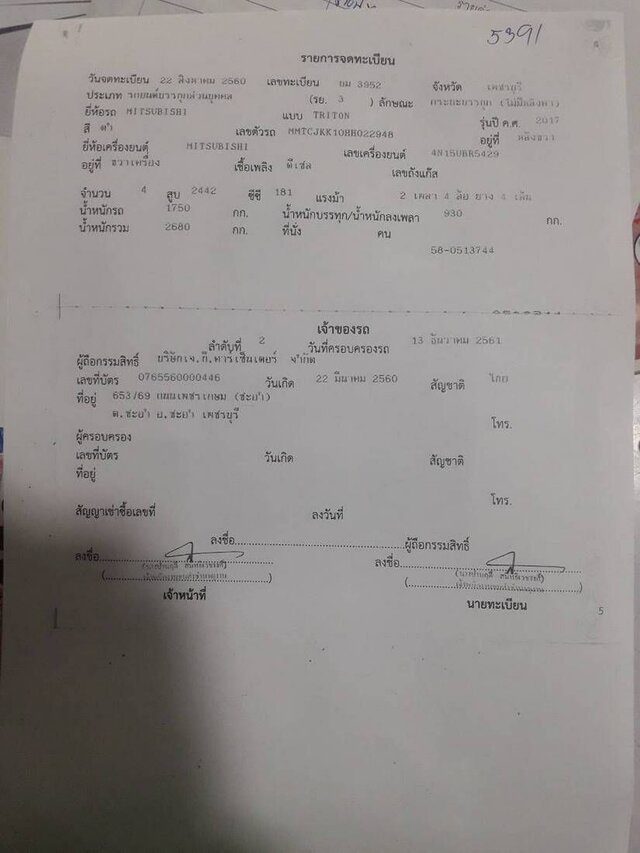 5391
รายการจดทะเบียน
วันจดทะเบียน 22 สิงหาคม 2560 เลขทะเบียน ยม 3952 จังหวัด เพชรบุรี
ประเภท รถยนต์บรรทุกส่วนบุคคล (รย. 3 ) ลักษณะ กระบะบรรทุก (ไม่มีหลังคา)
ยี่ห้อรถ MITSUBISHI แบบ TRITON รุ่นปี ค.ศ. 2017
สี ดำ เลขตัวรถ MMTCJKK10HH022948 อยู่ที่ หลังขวา
ยี่ห้อเครื่องยนต์ MITSUBISHI เลขเครื่องยนต์ 4N15UBR5429
อยู่ที่ ขวาเครื่อง เชื้อเพลิง ดีเซล เลขถังแก๊ส
จำนวน 4 สูบ 2442 ซีซี 181 แรงม้า 2 เพลา 4 ล้อ ยาง 4 เส้น
น้ำหนักรถ 1750 กก. น้ำหนักบรรทุก/น้ำหนักลงเพลา 930 กก.
น้ำหนักรวม 2680 กก. ที่นั่ง คน
58-0513744
เจ้าของรถ
ลำดับที่ 2 วันที่ครอบครองรถ 13 ธันวาคม 2561
ผู้ถือกรรมสิทธิ์ บริษัทเจ.ที.คาร์เซ็นเตอร์ จำกัด
เลขที่บัตร 0765560000446 วันเกิด 22 มีนาคม 2560 สัญชาติ ไทย
ที่อยู่ 653/69 ถนนเพชรเกษม (ชะอำ)
ต.ชะอำ อ.ชะอำ เพชรบุรี
โทร.
ผู้ครอบครอง
เลขที่บัตร วันเกิด สัญชาติ
ที่อยู่
โทร.
สัญญาเช่าซื้อเลขที่ ลงวันที่
ลงชื่อ ผู้ถือกรรมสิทธิ์
ลงชื่อ ลงชื่อ
เจ้าหน้าที่ นายทะเบียน
5